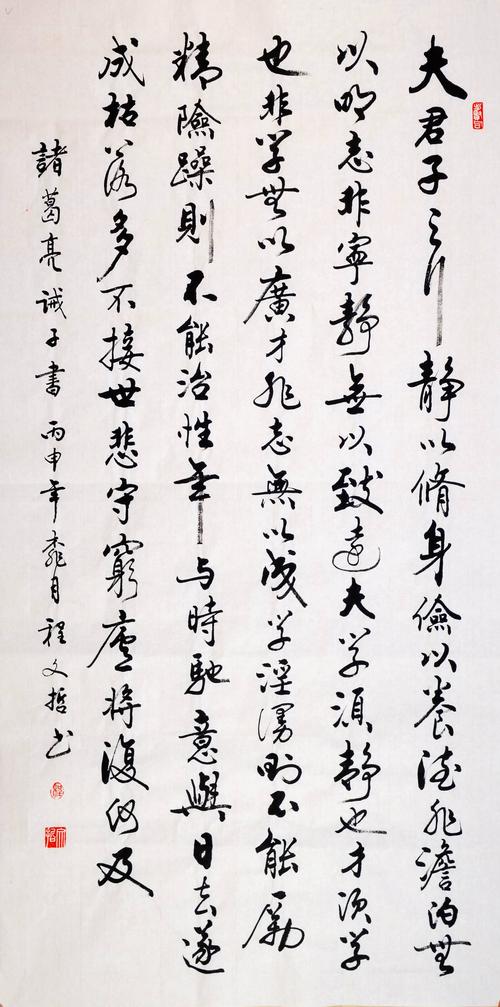 夫君子之行静以脩身儉以養德非澹泊無
以明志非寧静無以致遠夫学須静也才須学
也非学無以廣才非志無以成学淫漫則不能勵
精險躁則不能治性年与時馳意與日去遂
成枯落多不接世悲守窮廬將復何及
諸葛亮诫子書 丙申年月 程文哲书